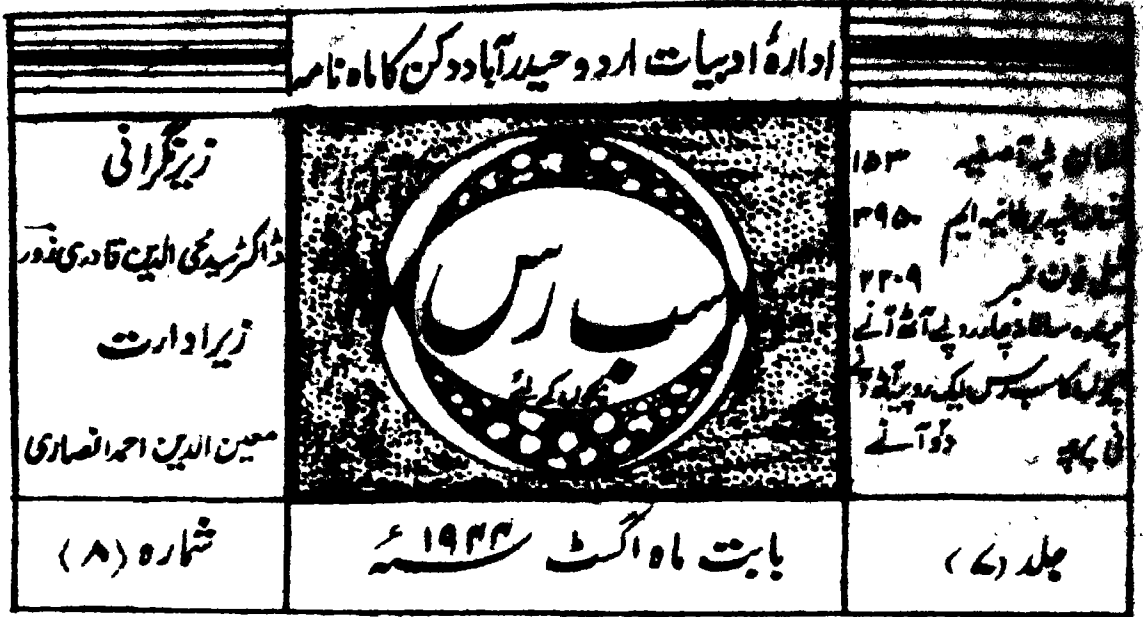 ادارۂ ادبیات اردو حیدرآباد دکن کا ماہ نامہ
نشان ٹپہ آصفیہ ۱۵۳
نشان ٹپہ برطانیہ ایم ۳۹۵۰
ٹیلی فون نمبر ۲۲۰۹
چندہ سالانہ چار روپے آٹھ آنے
بچوں کا سب رس ایک روپیہ آٹھ آنے
فی پرچہ دو آنے
سب رس
بچوں کے لئے
زیر نگرانی
ڈاکٹر سید محی الدین قادری زورؔ
زیر ادارت
معین الدین احمد انصاری
جلد (۷)
بابت ماہ اگسٹ ۱۹۴۴ء
شمارہ (۸)